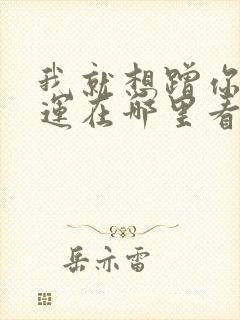 我就想蹭你
运在哪里看
岳亦雷